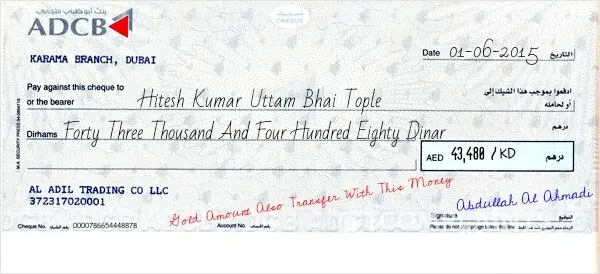 بنك أبوظبي التجاري
ADCB
CHEQUE
KARAMA BRANCH, DUBAI
Date 01-06-2015 التاريخ
Pay against this cheque to ادفعوا بموجب هذا الشيك إلى
or the bearer Hitesh Kumar Uttam Bhai Tople أو لحامله
Dirhams Forty Three Thousand And Four Hundred Eighty Dinar درهم
AED 43,480 /KD درهم
AL ADIL TRADING CO LLC
372317020001
Gold Amount Also Transfer With This Money
Abdullah Al Ahmadi
Signature التوقيع
Cheque No. رقم الشيك 0000786654448878 Account No. رقم الحساب Please do not stamp/sign below this line